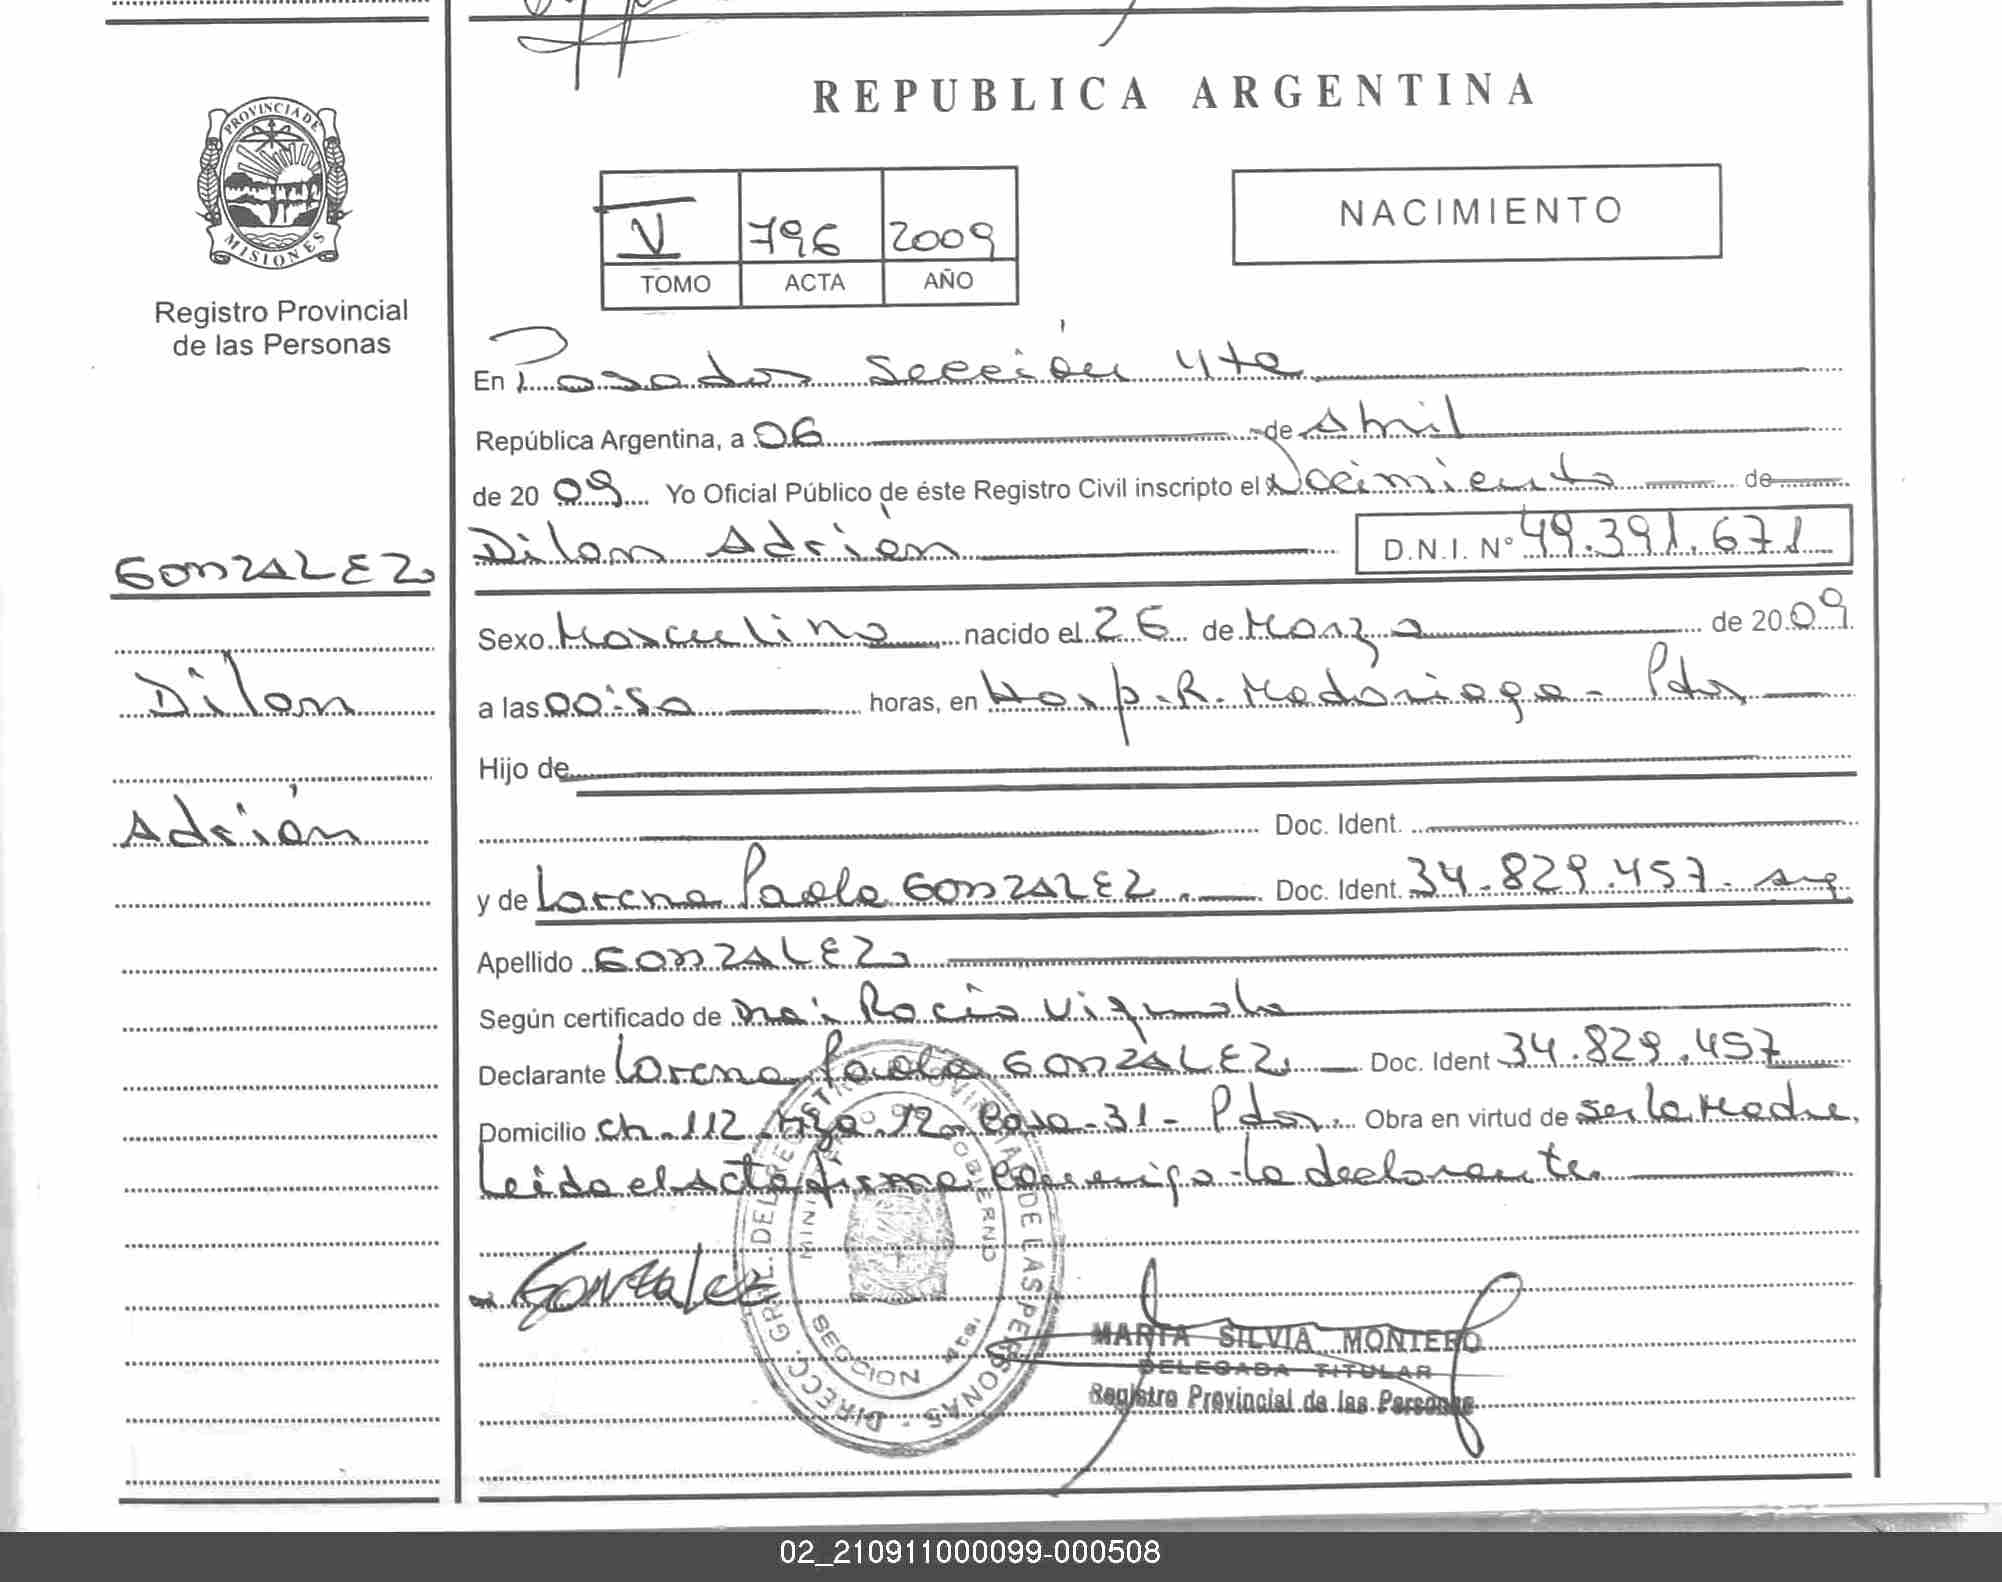 REPUBLICA ARGENTINA
PROVINCIA DE
MISIONES
Registro Provincial
de las Personas
V 796 2009
TOMO ACTA AÑO
NACIMIENTO
En Posadas Sección 4ta
República Argentina, a 06 de Abril
de 2009 Yo Oficial Público de éste Registro Civil inscripto el Nacimiento de
Dilan Adrián D.N.I. Nº 49.391.671
GONZALEZ
Dilan
Adrián
Sexo Masculino nacido el 26 de Marzo de 2009
a las 00:50 horas, en Hosp. R. Madariaga - Pdas
Hijo de
Doc. Ident.
y de Lorena Paola GONZALEZ. Doc. Ident. 34.829.457. arg
Apellido GONZALEZ
Según certificado de Rocío
Declarante Lorena Paola GONZALEZ Doc. Ident 34.829.457
Domicilio ch. 112 12 Casa 31 - Pdas. Obra en virtud de ser la Madre,
Leída el Acta firma conmigo la declarante
Gonzalez
DIRECC. GRAL. DEL REGISTRO PROVINCIAL DE LAS PERSONAS
MINISTERIO DE GOBIERNO
SECCION 4ta.
MARTA SILVIA MONTERO
DELEGADA TITULAR
Registro Provincial de las Personas
02_210911000099-000508